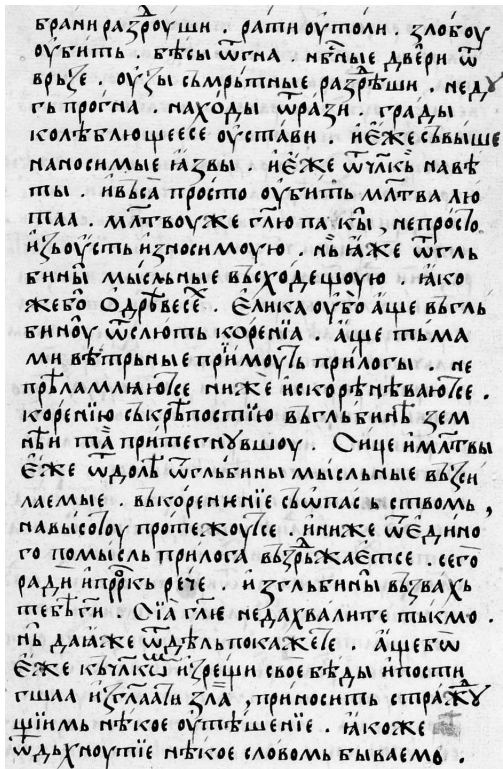 брани раздрⷹ҇оуши . рати оутоли . злобоу
оубить . бѣсы ѿгна . нб҃ные двери ѿ
врьзе . оузы съмрьтные раздрѣши . недꙋ
гь прогна . находы ѿрази . грады
колѣблющеесе оустави . и еже съвыше
наносимые ꙗзвы . и еже ѿ чл҃кь навѣ
ты . и въса просто оубить мл҃тва лю
таа . мл҃твоу же гл҃ю пакы , не просто
изь оусть износимоую . нь ꙗже ѿ гль
бины мысльные въсходещоую . ꙗко
же бо ѡ дрѣвесе . елика оубо аще въ гль
биноу ѿслють корениа . аще тьма
ми вѣтрьные приимоуть прилогы . не
прѣламлꙗютсе ниже искорѣнѣваютсе .
корению съ крѣпостию въ гльбинѣ зем
нѣи та притегнꙋвшоу . Сице и мл҃твы
еже ѿдолѣ ѿ гльбины мысльные възси
лаемые . въкоренение съ ѡпасьствомь ,
на высотоу протежоутсе . и ниже ѿ едино
го помысль прилога възражаетсе . сего
ради и пр҃ркь рече из глꙋбины възвахь
тебѣ г҃и . Сиа гл҃ю не да хвалите тькмо .
нь да ꙗже ѿ дѣль покажете . аще бѡ
еже кь чл҃кѡⷨ изрещи свое бѣды и пости
гшла изглаати зла , приносить страждꙋ
щиимь нѣкое оутѣшение . ꙗкоже
ѿдьхноутие нѣкое словомь бываемо .